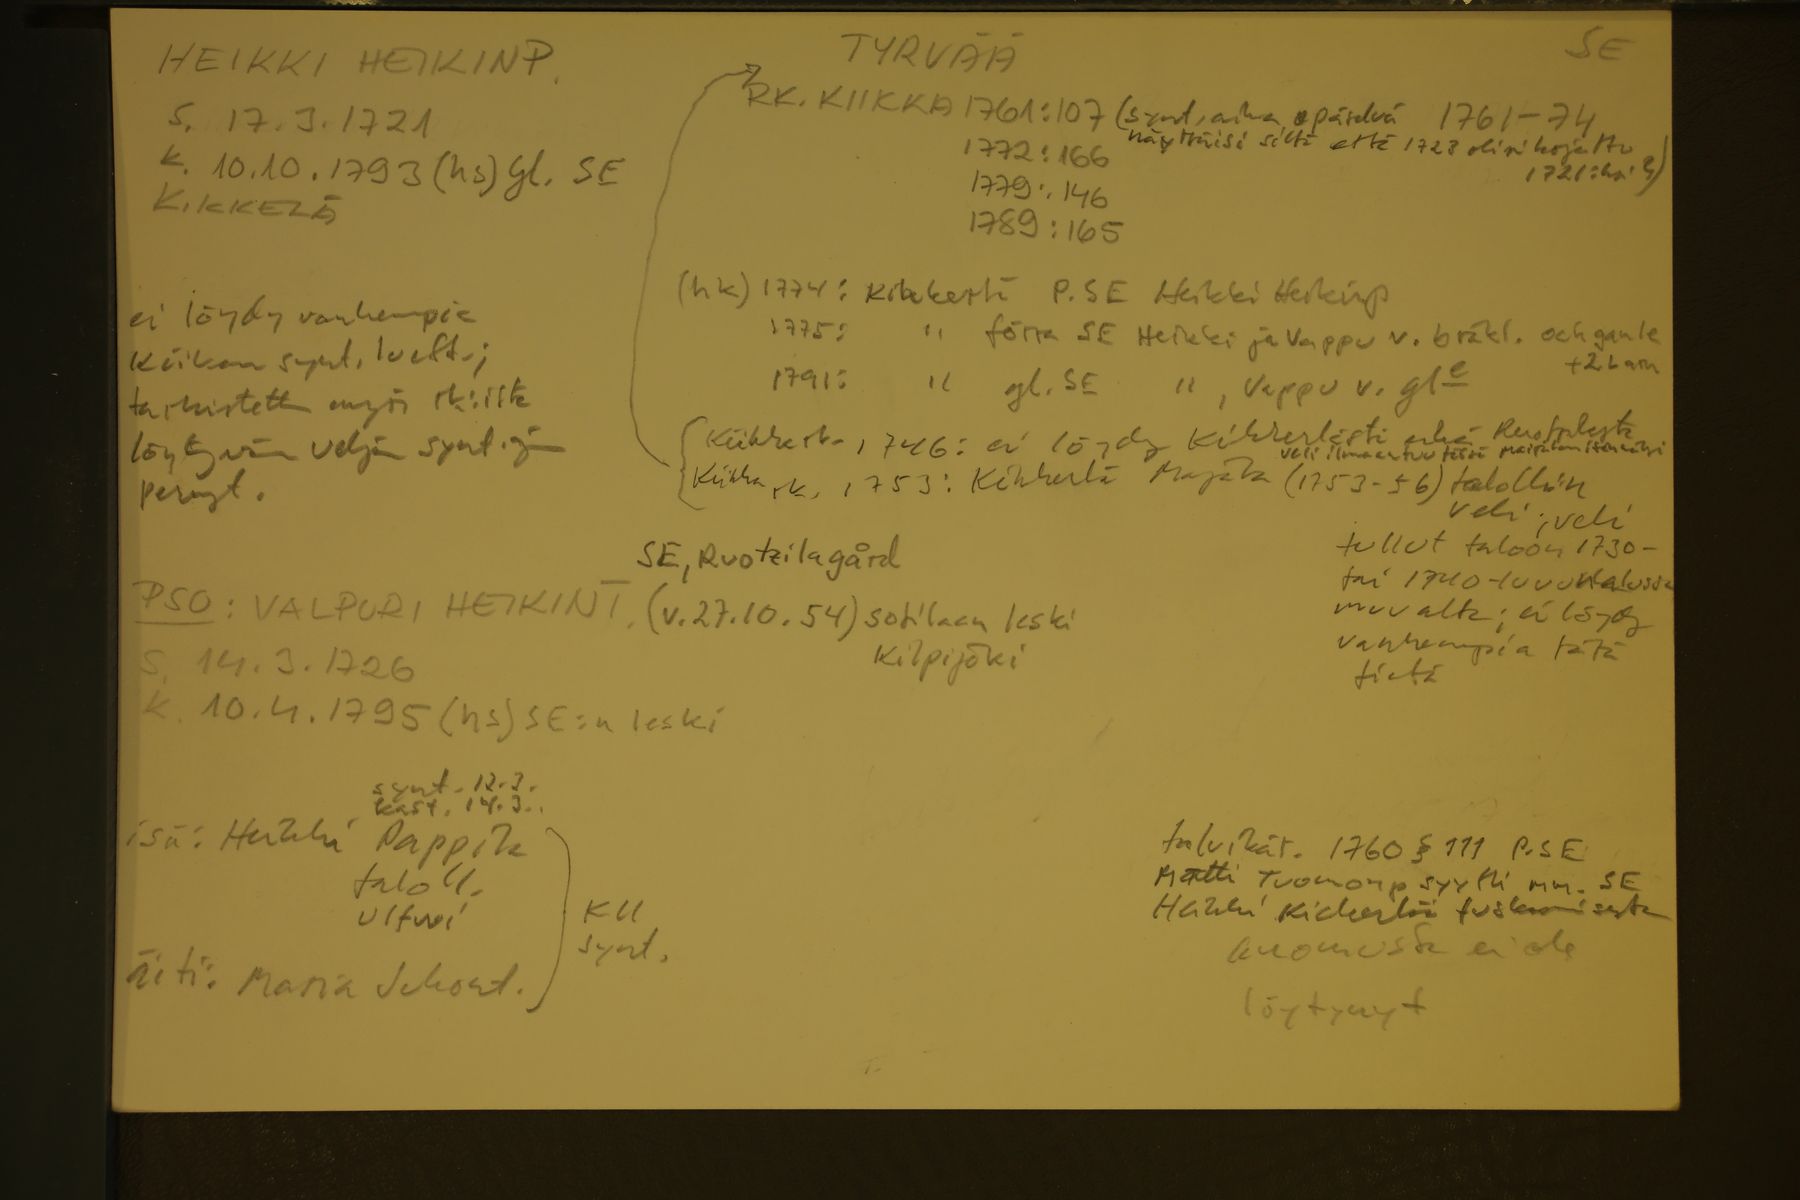 HEIKKI HEIKINP.
S. 17.3.1721
K. 10.10.1793 (hs) gl. SE
KIKKELÄ
TYRVÄÄ
SE
RK. KIIKKA 1761:107 (synt. aika epäselvä 1761-74
näyttäisi siltä että 1723 olisi korjattu
1721:ksi ?)
1772:166
1779:146
1789:165
ei löydy vanhempia
Kiikan synt. luett.;
tarkistettu myös rk:ista
löytyvän veljen synt. ja
perust.
(hk) 1774: P.SE Heikki Heikinp
1775: " förra SE Heikki ja Vappu v. bräkl. och gamle
+2 lasta
1791: " gl. SE " , Vappu v. gle
Kiikka rk. 1746: ei löydy
Kiikka rk. 1753: (1753-56) talollisen
veli ; veli
tullut taloon 1730-
tai 1740-luvun alussa
muualta; ei löydy
vanhempia tätä
tietä
SE, Ruotzilagård
PSO: VALPURI HEIKINT. (v. 27.10.54) sotilaan leski
Kilpijoki
S. 14.3.1726
K. 10.4.1795 (hs) SE:n leski
synt. 12.3.
kast. 14.3.
isä: Heikki Pappila
taloll.
äiti: Maria Juhont.
KII
synt.
talvikär. 1760 § 111 P.SE
Matti Tuomonp syytti mm. SE
Heikki
tuomiosta ei ole
löytynyt